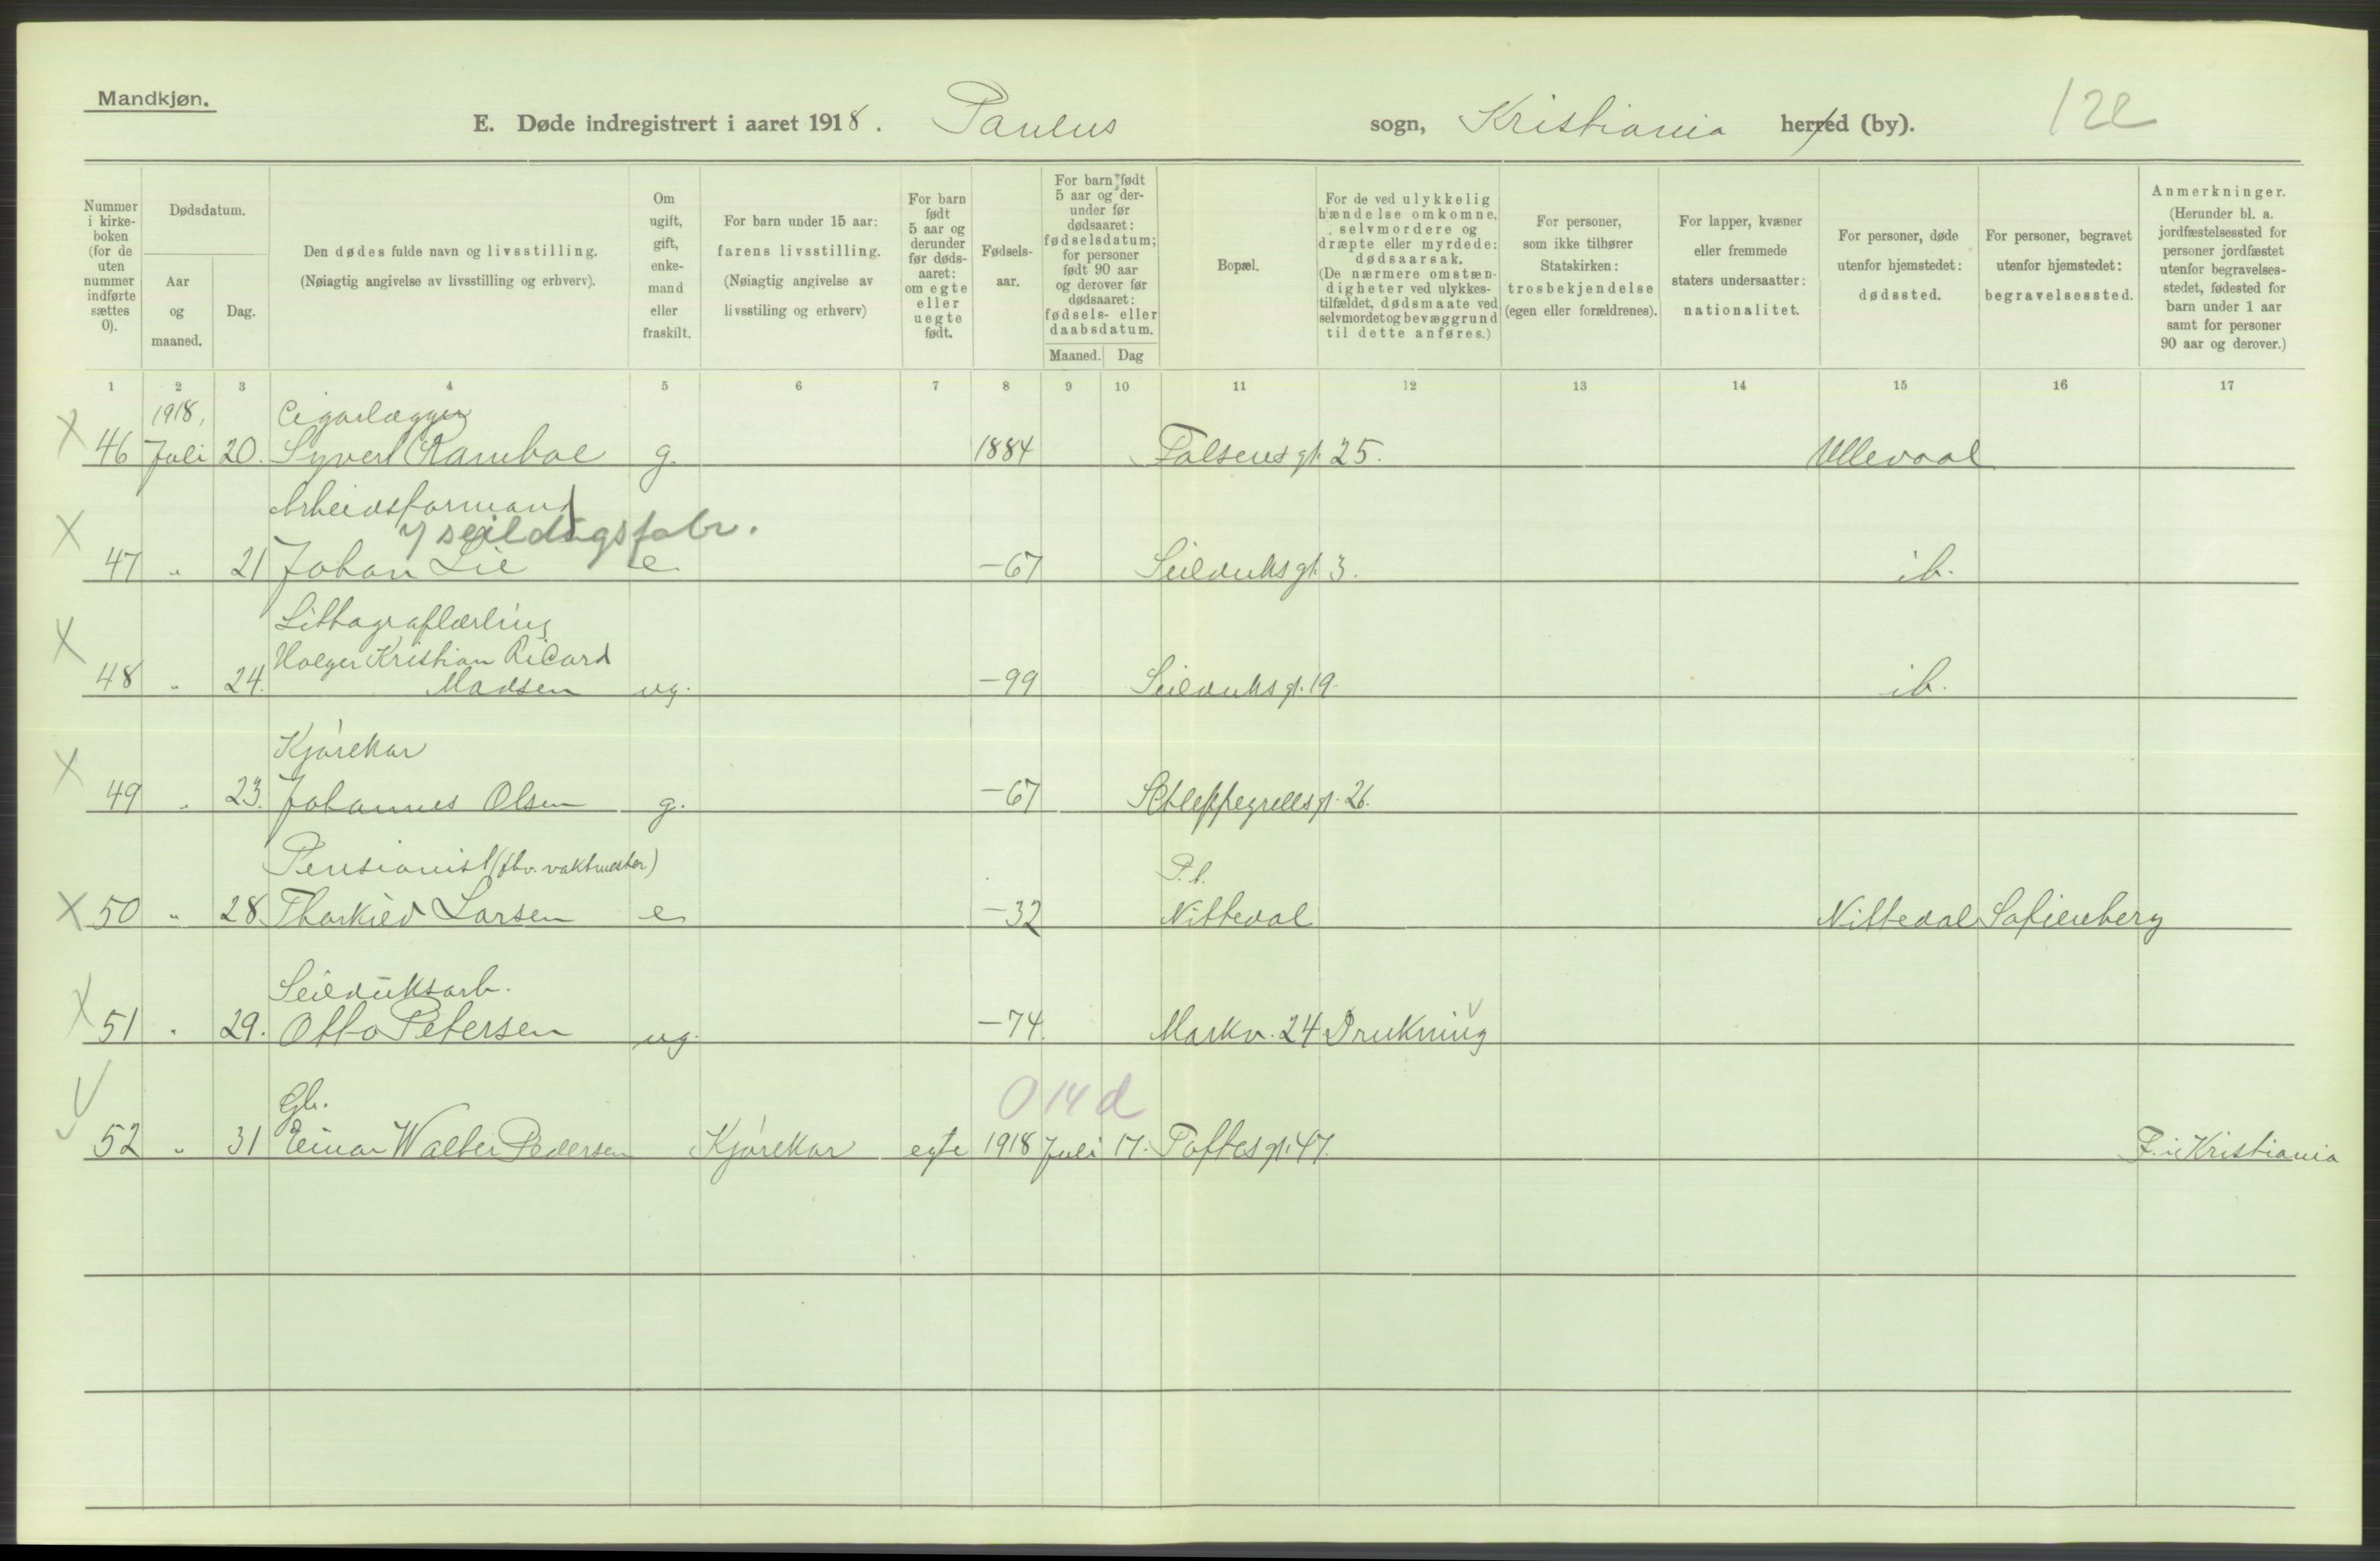 Mandkjøn.
E. Døde indregistrert i aaret 1918. Paulus sogn, Kristiania herred (by). 122
Nummer i kirke-boken (for de uten nummer indførte sættes 0).
Dødsdatum.
Aar og maaned.
Dag.
Den dødes fulde navn og livsstilling.
(Nøiagtig angivelse av livsstilling og erhverv).
Om ugift, gift, enke-mand eller fraskilt.
For barn under 15 aar:
farens livsstilling.
(Nøiagtig angivelse av livsstiling og erhverv)
For barn født 5 aar og derunder før døds-aaret: om egte eller uegte født.
Fødsels-aar.
For barn født 5 aar og der-under før dødsaaret: fødselsdatum; for personer født 90 aar og derover før dødsaaret: fødsels- eller daabsdatum.
Maaned. Dag
Bopæl.
For de ved ulykkelig hændelse omkomne, selvmordere og dræpte eller myrdede: dødsaarsak.
(De nærmere omstæn-digheter ved ulykkes-tilfældet, dødsmaate ved selvmordet og bevæggrund til dette anføres.)
For personer, som ikke tilhører Statskirken: trosbekjendelse (egen eller forældrenes).
For lapper, kvæner eller fremmede staters undersaatter: nationalitet.
For personer, døde utenfor hjemstedet: dødssted.
For personer, begravet utenfor hjemstedet: begravelsessted.
Anmerkninger.
(Herunder bl. a. jordfæstelsessted for personer jordfæstet utenfor begravelses-stedet, fødested for barn under 1 aar samt for personer 90 aar og derover.)
1 2 3 4 5 6 7 8 9 10 11 12 13 14 15 16 17
1918, Cigarlægger
X 46 Juli 20. Syvert Rambøl g. 1884 Falsens gt. 25. Ullevaal
Arbeidsformand
v seildugsfabr.
X 47 " 21 Johan Lie e. -67 Seilduksgt. 3. ib.
Lithograflærling
Holger Kristian Ricard
X 48 " 24. Madsen ug. -99 Seilduksgt. 19. ib.
Kjørekar
X 49 " 23. Johannes Olsen g. -67 Schleppegrellsgt. 26.
Pensionist (fhv. vaktmester) P.t.
X 50 " 28. Thorkild Larsen e -32 Nittedal Nittedal Sofienberg
Seilduksarb.
X 51 " 29. Otto Petersen ug. -74. Markv. 24 Drukning
Gb. 0 14 d
52 " 31 Einar Walter Pedersen Kjørekar egte 1918 Juli 17. Toftesgt. 47. F. i Kristiania